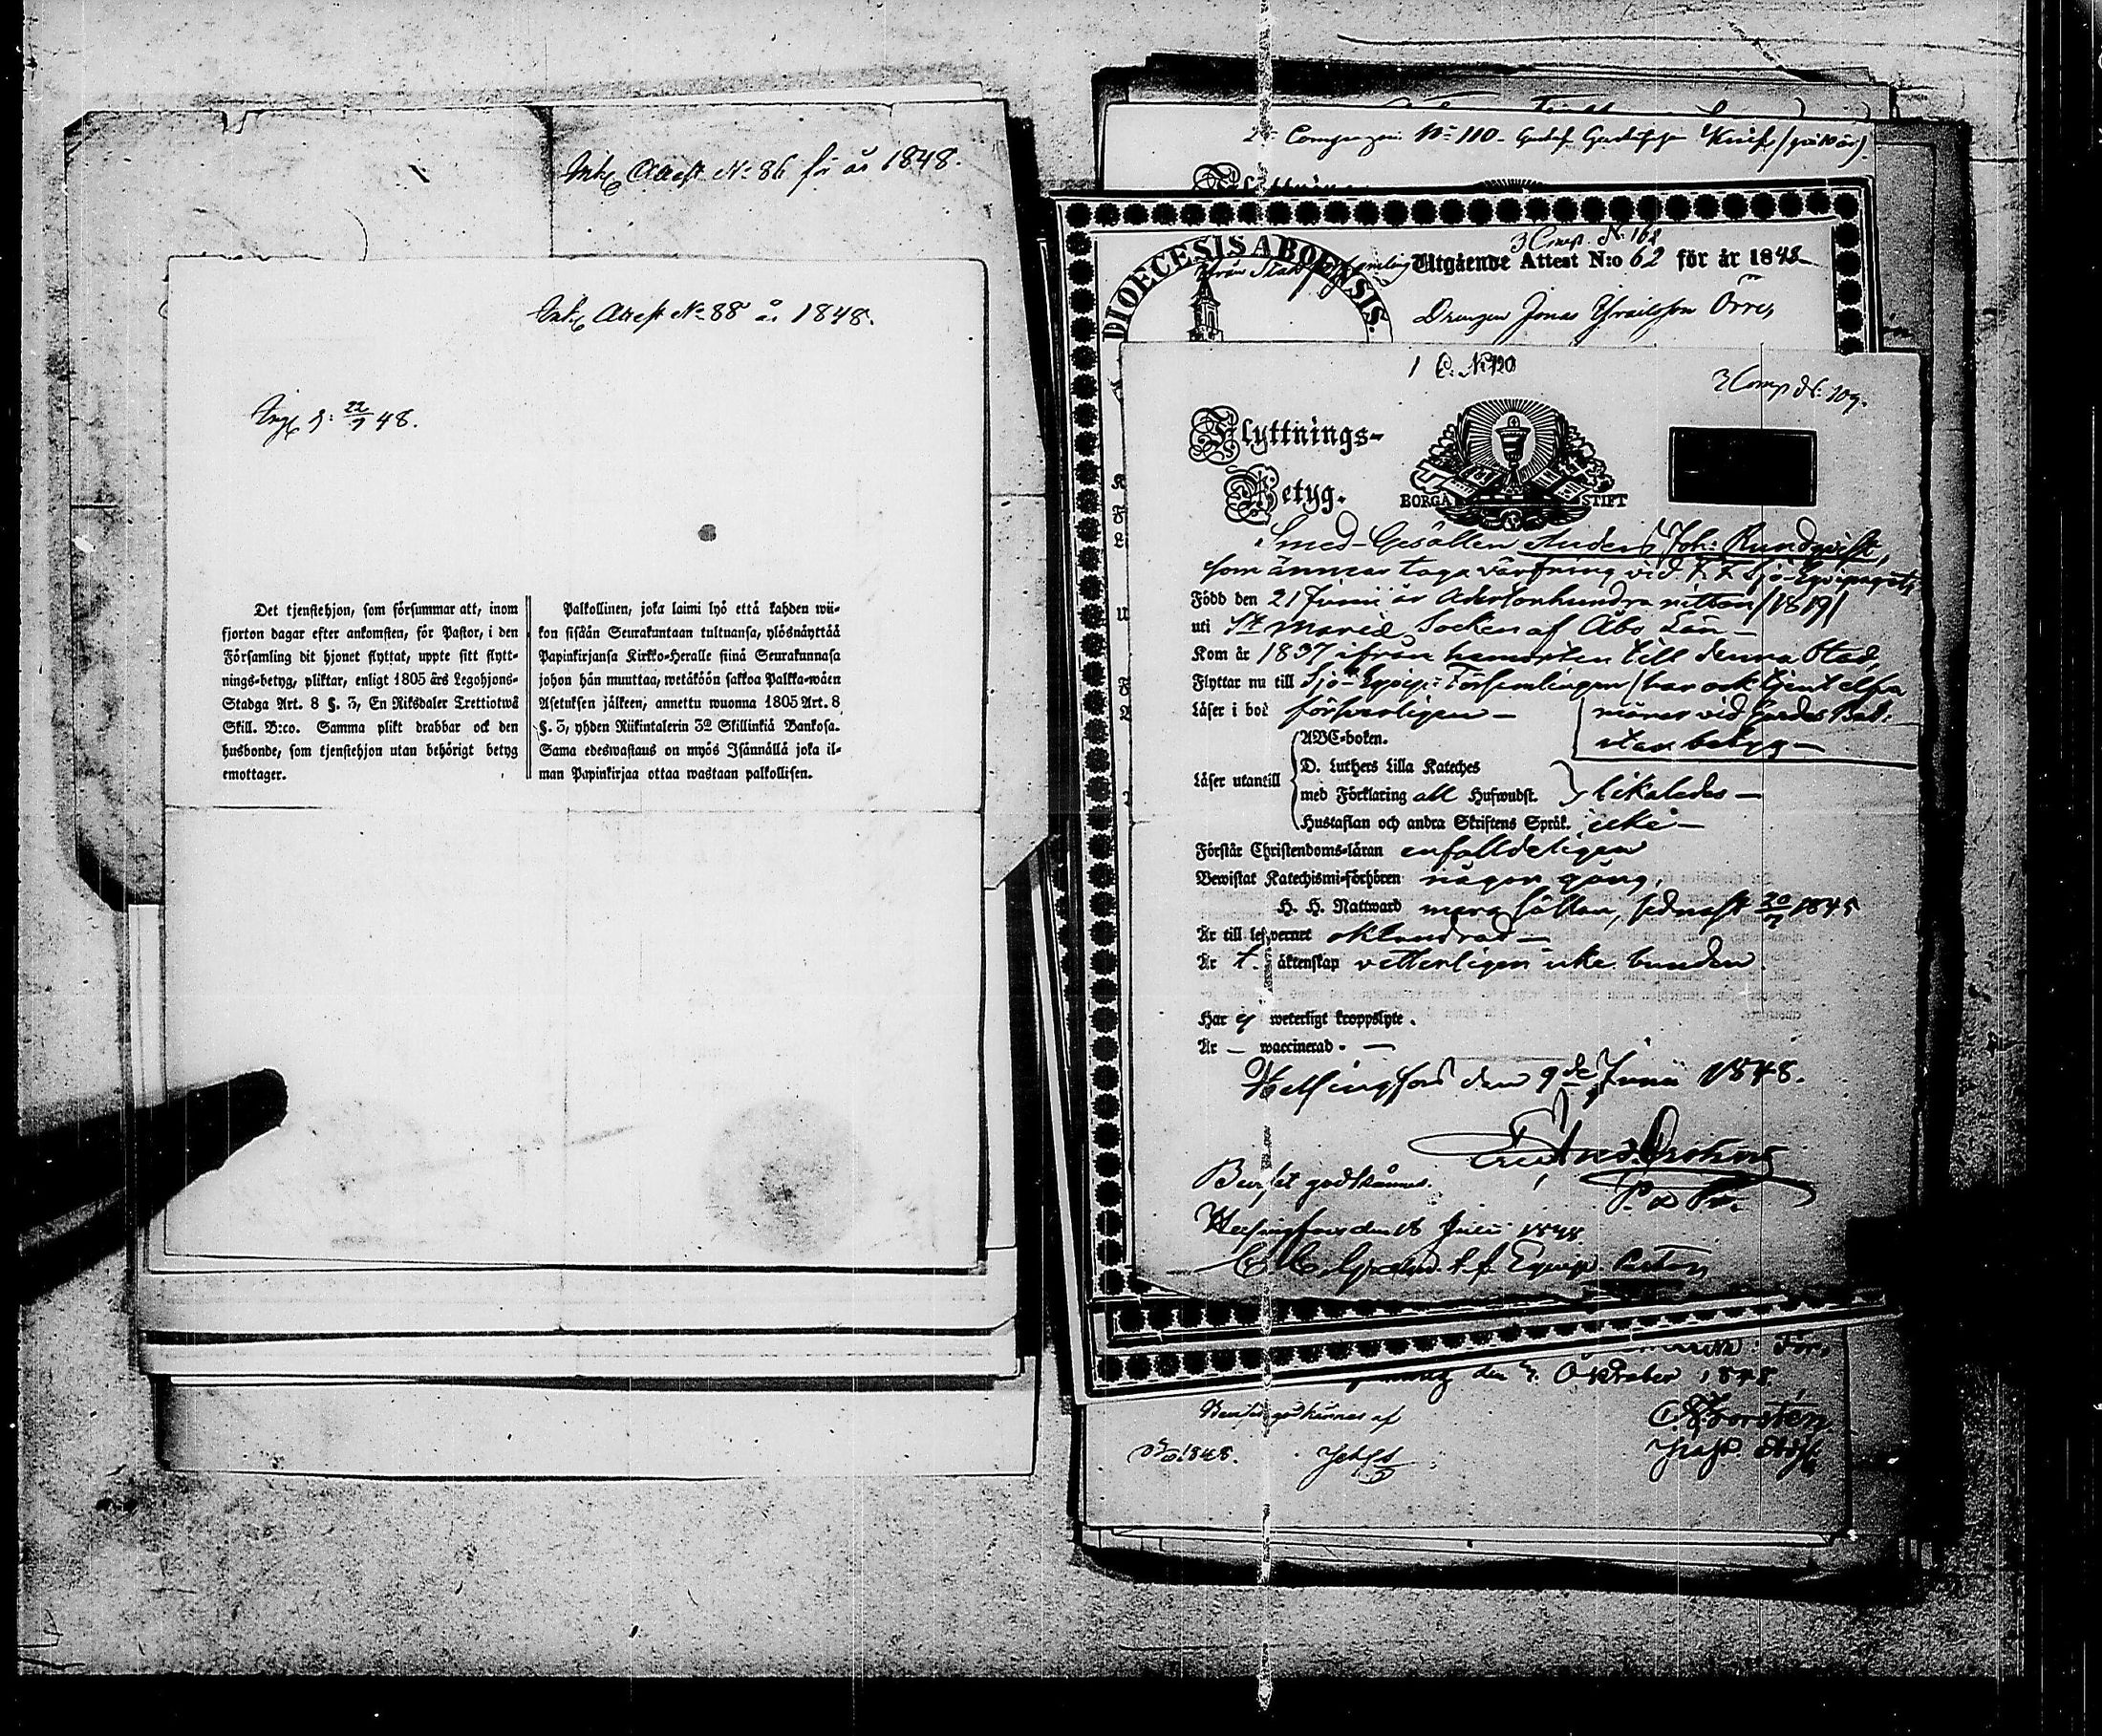 Attest No 86 för år 1848.
Attest No 88 år 1848.
22/7 48.
Det tjenstehjon, som försummar att, inom
fjorton dagar efter ankomsten, för Pastor, i den
Församling dit hjonet flyttat, uppte sitt flytt-
nings-betyg, pliktar, enligt 1805 års Legohjons-
Stadga Art. 8 §. 3, En Riksdaler Trettiotwå
Skill. B:co. Samma plikt drabbar ock den
husbonde, som tjenstehjon utan behörigt betyg
emottager.
Palkollinen, joka laimi lyö että kahden wii-
kon sisään Seurakuntaan tultuansa, ylösnäyttää
Papinkirjansa Kirkko-Heralle siinä Seurakunnasa
johon hän muuttaa, wetäköön sakkoa Palkka-wäen
Asetuksen jälkeen; annettu wuonna 1805 Art. 8
§. 3, yhden Riikintalerin 32 Skillinkiä Bankosa.
Sama edeswastaus on myös Isännällä joka il-
man Papinkirjaa ottaa wastaan palkollisen.
2 Compagni No 110 Gustaf
3 Comp. No 162
DIOECESIS ABOENSIS.
Utgående Attest N:o 62 för år 1848
Drengen Jonas Örre
1 C. No 120
3 Comp No 109.
Flyttnings-
Betyg.
BORGÅ STIFT
Smed-Gesällen Anders Joh: Rundqvist,
som ämnar taga värfning vid Sjö-Equipaget;
Född den 21 Junii år Adertonhundra nitton /1819/
uti St Mariæ Socken af Åbo Län
Kom år 1837 ifrån hemorten till denna Stad,
Flyttar nu till Sjö-Equip: Församlingen /har ock tjent elfva
Läser i bok försvarligen månar vid Gardes Bat:
utan betyg
ABC-boken.
D. Luthers Lilla Kateches
Läser utantill med Förklaring all Hufwudst. likaledes
Hustaflan och andra Skriftens Språk. icke
Förstår Christendoms-läran enfalldeligen
Bewistat Katechismi-förhören någon gång,
H. H. Nattward mera sällan, sednast 20/7 1845
Är till lefwernet oklandrad
Är t. äktenskap vetterligen icke bunden
Har ej weterligt kroppslyte.
Är — waccinerad. —
Helsingfors den 9de Junii 1848.
P. Pr.
Beviset godkännes.
Helsingfors den 18 Julii 1848
t. f. Equip Pastor
den 7. Oktober 1848
Beviset godkännes af
1848.